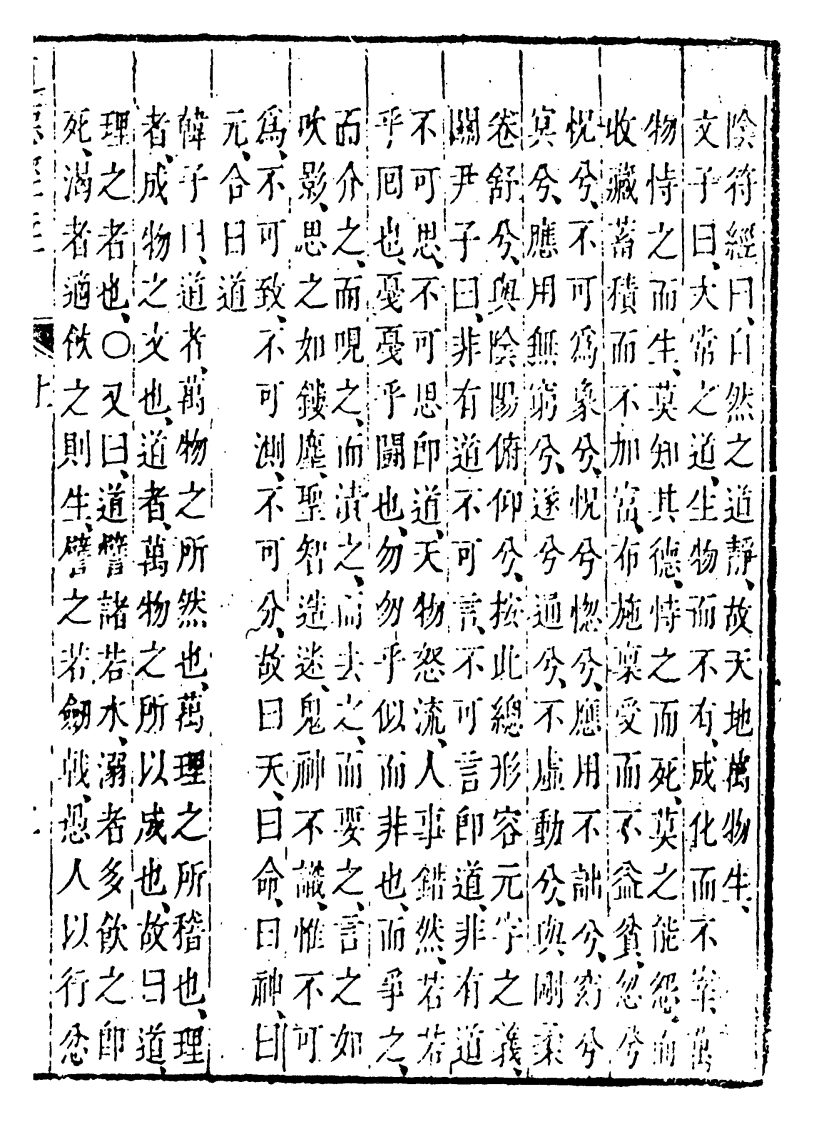 陰符經曰、自然之道靜、故天地萬物生、
文子曰、大常之道、生物而不有、成化而不宰、萬
物恃之而生、莫知其德、恃之而死、莫之能怨、
收藏蓄積而不加富、布施稟受而不益貧、忽兮
怳兮、不可為象兮、怳兮惚兮、應用不詘兮、窈兮
冥兮、應用無窮兮、遂兮通兮、不虛動兮、與剛柔
卷舒兮、與陰陽俯仰兮、按此總形容元字之義、
關尹子曰、非有道不可言、不可言即道、非有道
不可思、不可思即道、天物怒流、人事錯然、若若
乎回也、戞戞乎鬪也、勿勿乎似而非也、而爭之、
而介之、而哯之、而漬之、而去之、而要之、言之如
吹影、思之如鏤塵、聖智造迷、鬼神不識、惟不可
為、不可致、不可測、不可分、故曰天、曰命、曰神、曰
元、合曰道
韓子曰、道者、萬物之所然也、萬理之所稽也、理
者、成物之文也、道者、萬物之所以成也、故曰道、
理之者也、〇又曰、道譬諸若水、溺者多飲之即
死、渴者適飲之則生、譬之若劒戟、愚人以行忿